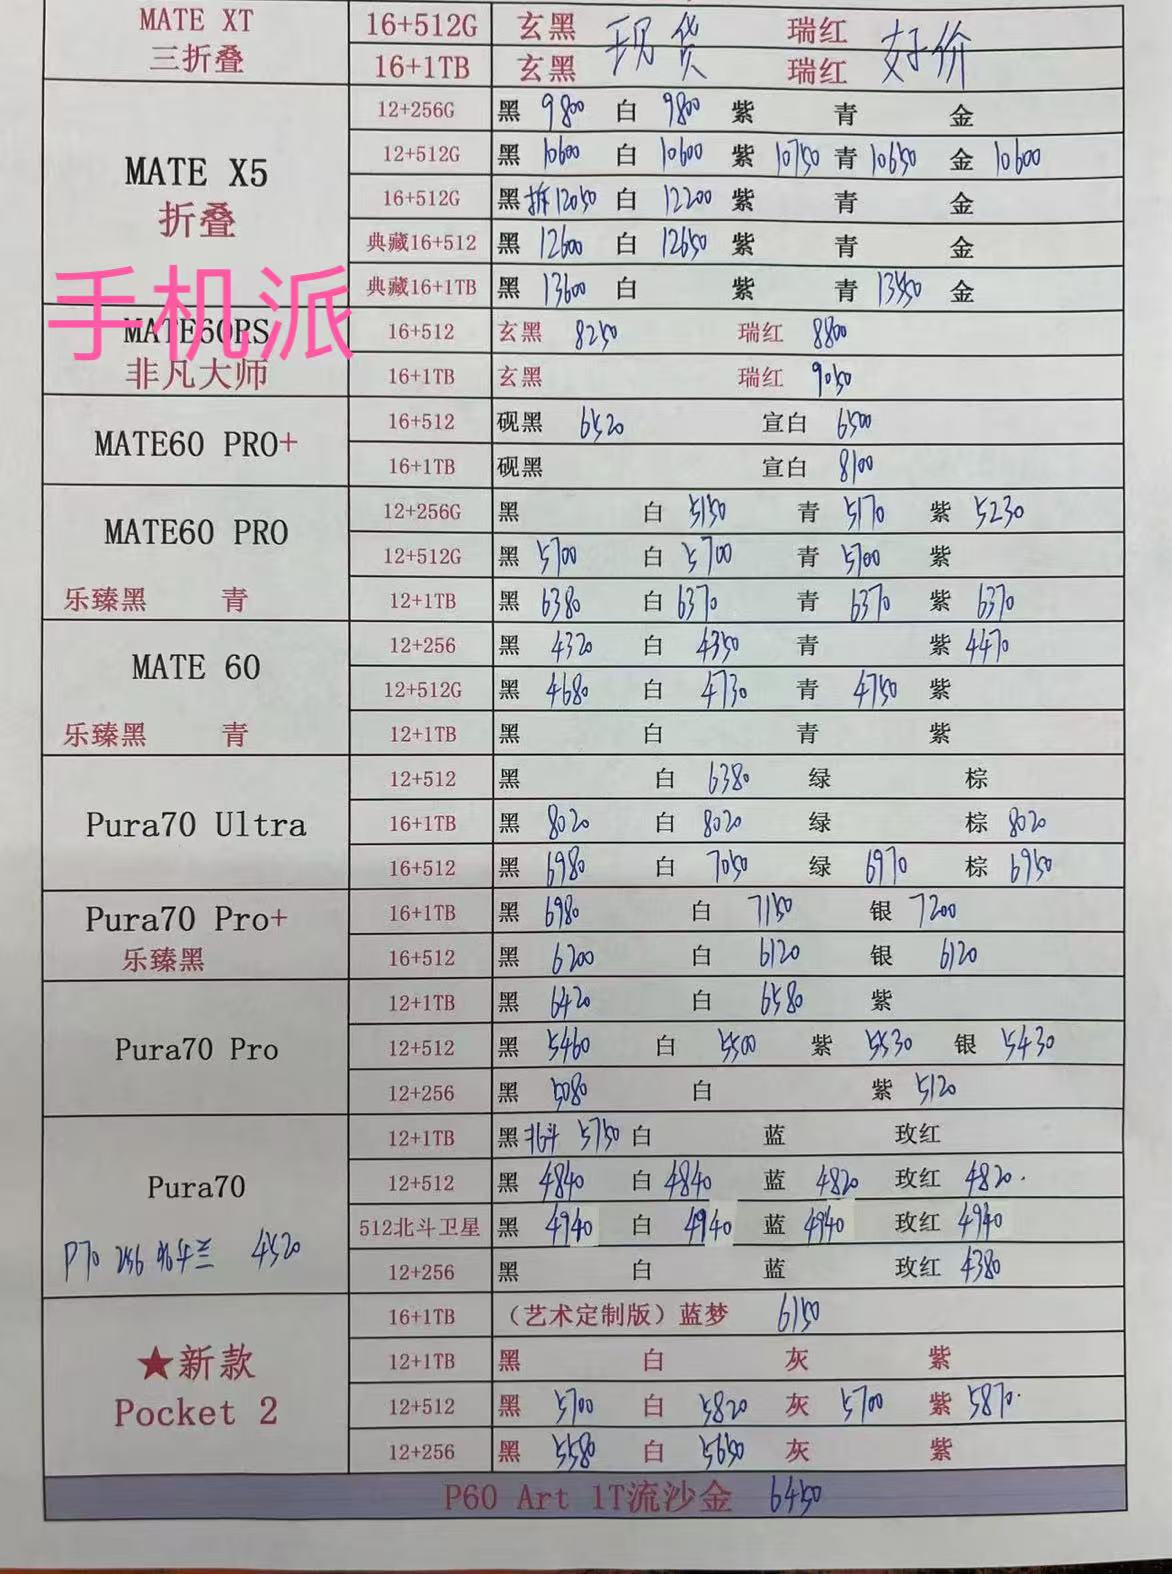 MATE XT 16+512G 玄黑 现货 瑞红 好价
三折叠 16+1TB 玄黑 瑞红
12+256G 黑 9800 白 9800 紫 青 金
MATE X5 12+512G 黑 10600 白 10600 紫 10750 青 10650 金 10600
折叠 16+512G 黑 拆 12050 白 12200 紫 青 金
典藏16+512 黑 12600 白 12650 紫 青 金
手机派
典藏16+1TB 黑 13600 白 紫 青 13450 金
MATE60RS 16+512 玄黑 8250 瑞红 8800
非凡大师 16+1TB 玄黑 瑞红 9050
MATE60 PRO+ 16+512 砚黑 6520 宣白 6500
16+1TB 砚黑 宣白 8100
MATE60 PRO 12+256G 黑 白 5150 青 5170 紫 5230
12+512G 黑 5700 白 5700 青 5700 紫
乐臻黑 青 12+1TB 黑 6380 白 6370 青 6370 紫 6370
MATE 60 12+256 黑 4320 白 4350 青 紫 4470
12+512G 黑 4680 白 4730 青 4750 紫
乐臻黑 青 12+1TB 黑 白 青 紫
12+512 黑 白 6380 绿 棕
Pura70 Ultra 16+1TB 黑 8020 白 8020 绿 棕 8020
16+512 黑 6980 白 7050 绿 6970 棕 6950
Pura70 Pro+ 16+1TB 黑 6980 白 7150 银 7200
乐臻黑 16+512 黑 6200 白 6120 银 6120
12+1TB 黑 6420 白 6580 紫
Pura70 Pro 12+512 黑 5460 白 5500 紫 5530 银 5430
12+256 黑 5080 白 紫 5120
12+1TB 黑 北斗 5750 白 蓝 玫红
Pura70 12+512 黑 4840 白 4840 蓝 4820 玫红 4820.
512北斗卫星 黑 4940 白 4940 蓝 4940 玫红 4940
P70 256 北斗兰 4520 12+256 黑 白 蓝 玫红 4380
16+1TB （艺术定制版）蓝梦 6150
★新款 12+1TB 黑 白 灰 紫
Pocket 2 12+512 黑 5700 白 5820 灰 5700 紫 5870.
12+256 黑 5580 白 5650 灰 紫
P60 Art 1T流沙金 6450